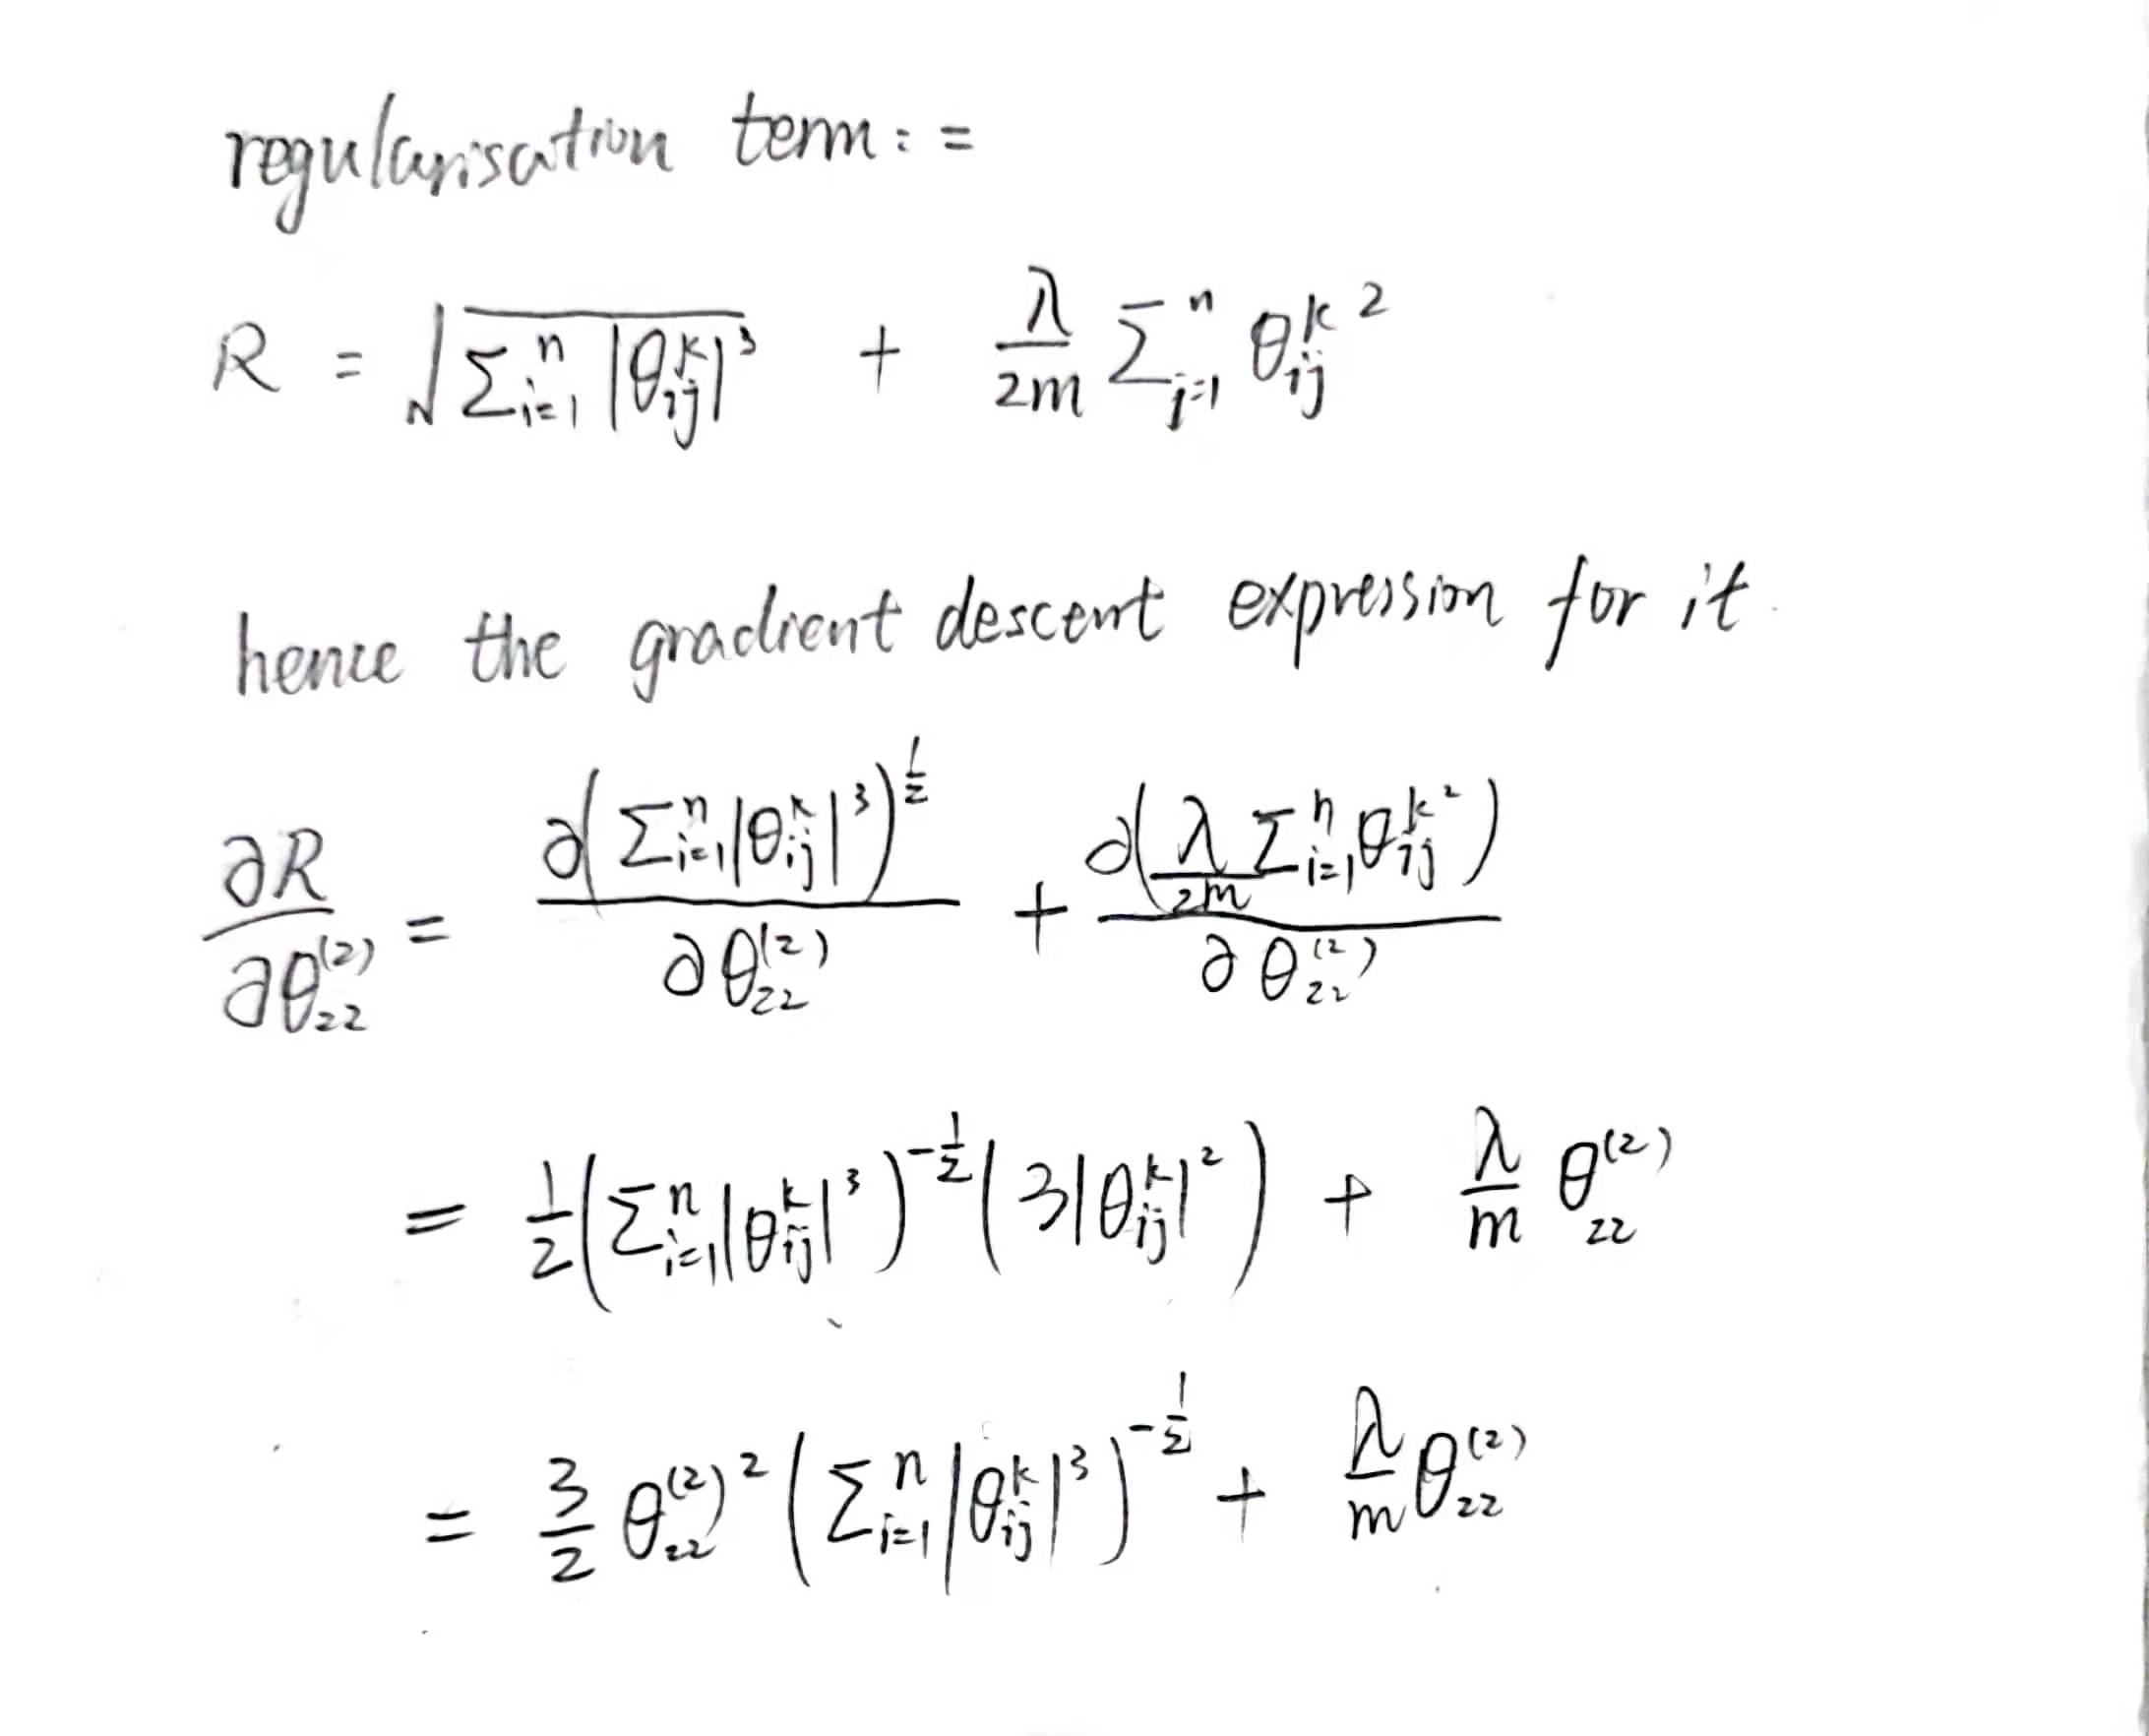 regularisation term: =
R = √(Σ_{i=1}^{n} |θ_{ij}^{k}|^3) + λ/2m Σ_{j=1}^{n} θ_{ij}^{k 2}
hence the gradient descent expression for it.
∂R/∂θ_{22}^{(2)} = ∂(Σ_{i=1}^{n} |θ_{ij}^{k}|^3)^{1/2} / ∂θ_{22}^{(2)} + ∂(λ/2m Σ_{i=1}^{n} θ_{ij}^{k 2}) / ∂θ_{22}^{(2)}
= 1/2 (Σ_{i=1}^{n} |θ_{ij}^{k}|^3)^{-1/2} (3|θ_{ij}^{k}|^2) + λ/m θ_{22}^{(2)}
= 3/2 θ_{22}^{(2) 2} (Σ_{i=1}^{n} |θ_{ij}^{k}|^3)^{-1/2} + λ/m θ_{22}^{(2)}